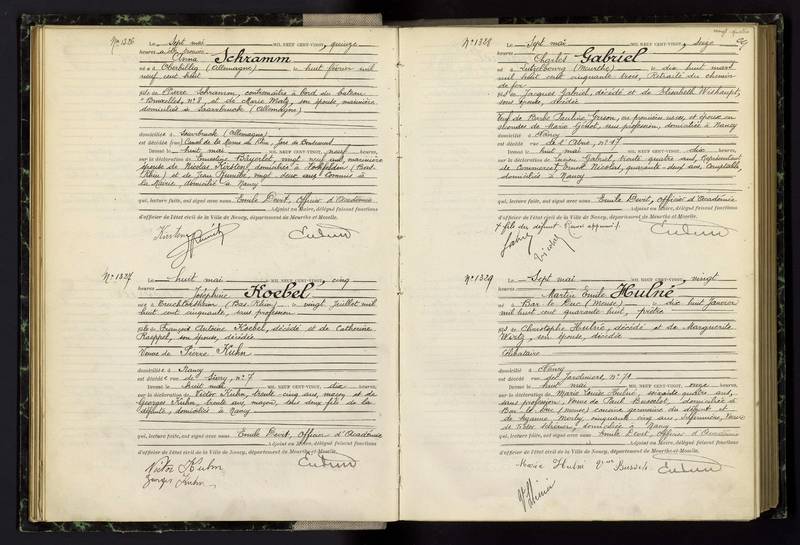 N° 1326
Le Sept mai MIL NEUF CENT-VINGT, quinze
heures
Anna Schramm
née à Oberbillig (Allemagne) le huit février mil
neuf cent huit
fille de Pierre Schramm, contremaître à bord du bateau
"Bruxelles, n° 8 et de Marie Mertz, son épouse, marinière
domiciliés à Saarbruck (Allemagne)
domiciliée à Sarrebruck (Allemagne)
est décédée Canal de la Marne au Rhin,
Dressé le huit mai MIL NEUF CENT-VINGT, neuf heures,
sur la déclaration de Bayerlet, vingt neuf ans, marinière
épouse de Nicolas Kirsten, domiciliée à Hochfelden (Bas-
Rhin) et de Jean vingt deux ans Commis à
la Mairie, domicilié à Nancy
qui, lecture faite, ont signé avec nous Emile Devit, Officier d'Académie
Adjoint au Maire, délégué faisant fonctions
d'officier de l'état civil de la Ville de Nancy, département de Meurthe et Moselle.
N° 1327
Le huit mai MIL NEUF CENT-VINGT, cinq
heures
Joséphine Koebel
née à Truchtersheim (Bas-Rhin) le vingt juillet mil
huit cent cinquante, sans profession
fille de François Antoine Koebel, décédé et de Catherine
Raeppel, son épouse, décédée
Veuve de Pierre Kuhn
domiciliée à Nancy
est décédée rue de Sivry, n° 7
Dressé le huit mai MIL NEUF CENT-VINGT, dix heures,
sur la déclaration de Victor Kuhn, trente cinq ans, maçon, et de
Georges Kuhn, trente ans, maçon, les deux fils de la
défunte, domiciliés à Nancy
qui, lecture faite, ont signé avec nous Emile Devit, Officier d'Académie
Adjoint au Maire, délégué faisant fonctions
d'officier de l'état civil de la Ville de Nancy, département de Meurthe et Moselle.
Victor Kuhn
Georges Kuhn
N° 1328
Le Sept mai MIL NEUF CENT-VINGT, seize
heures
Charles Gabriel
né à Lutzelbourg (Meurthe) le dix huit mars
mil huit cent cinquante trois, Retraité du chemin
de fer
fils de Jacques Gabriel, décédé et de Elisabeth
son épouse, décédée
Veuf de Barbe Pauline Grison, en premières noces et époux en
secondes de Marie sans profession, domiciliée à Nancy
domicilié à Nancy
est décédé rue n° 17
Dressé le huit mai MIL NEUF CENT-VINGT, dix heures,
sur la déclaration de Lucien Gabriel, trente quatre ans, Représentant
de Commerce et Nicolas, quarante-deux ans, Comptable,
domiciliés à Nancy
qui, lecture faite, ont signé avec nous Emile Devit, Officier d'Académie
Adjoint au Maire, délégué faisant fonctions
d'officier de l'état civil de la Ville de Nancy, département de Meurthe et Moselle.
+ fils du défunt Renvoi approuvé
N° 1329
Le Sept mai MIL NEUF CENT-VINGT, vingt
heures
Martin Emile Hulné
né à Bar le Duc (Meuse) le dix huit Janvier
mil huit cent quarante huit, prêtre
fils de Christophe Hulné, décédé et de Marguerite
Wertz, son épouse, décédée
Célibataire
domicilié à Nancy
est décédé rue des Jardiniers n° 7
Dressé le huit mai MIL NEUF CENT-VINGT, onze heures,
sur la déclaration de Marie Louise Hulné, soixante quatre ans,
sans profession, Veuve de Paul domiciliée à
Bar le Duc (Meuse) cousine germaine du défunt et
de Suzanne cinquante cinq ans, Infirmière, Veuve
de domiciliée à Nancy
qui, lecture faite, ont signé avec nous Emile Devit, Officier d'Académie
Adjoint au Maire, délégué faisant fonctions
d'officier de l'état civil de la Ville de Nancy, département de Meurthe et Moselle.
Marie Hulné